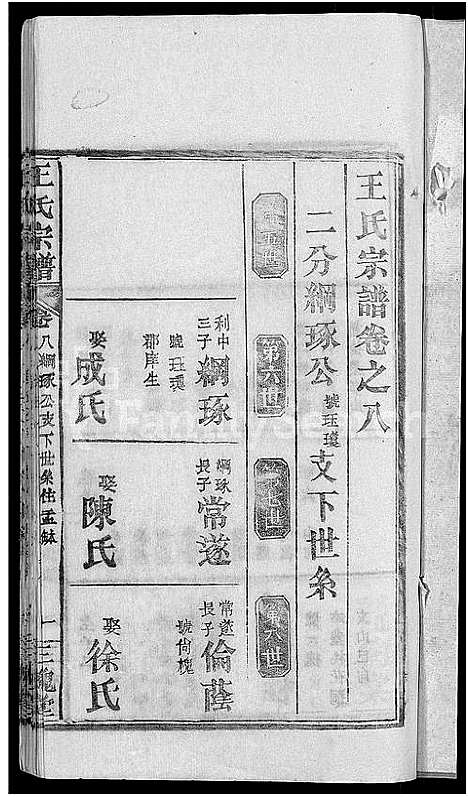 王氏宗譜卷之八
二分綱琢公號珏璞支下世系
第五世
第六世
第七世
第八世
利中三子綱琢
號珏璞
郡庠生
娶成氏
綱琢長子常遂
娶陳氏
常遂長子倫蔭
號尙槐
娶徐氏
王氏宗譜
卷八綱琢公支下世系仕孟缽
一
三槐堂